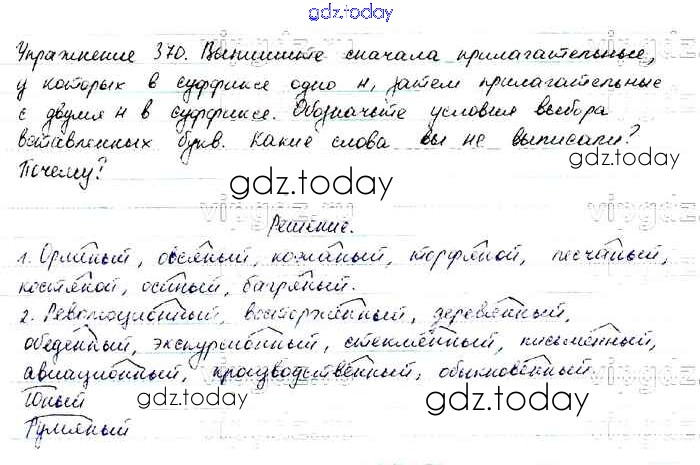 gdz.today
Упражнение 370. Выпишите сначала прилагательные,
у которых в суффиксе одно н, затем прилагательные
с двумя н в суффиксе. Обозначьте условия выбора
вставленных букв. Какие слова вы не выписали?
Почему?
gdz.today
gdz.today
Решение.
1. Орлиный, овсяный, кожаный, торфяной, песчаный,
костяной, осиный, багряный.
2. Революционный, восторженный, деревянный,
обеденный, экскурсионный, стеклянный, письменный,
авиационный, производственный, обыкновенный.
Юный
gdz.today
gdz.today
Румяный